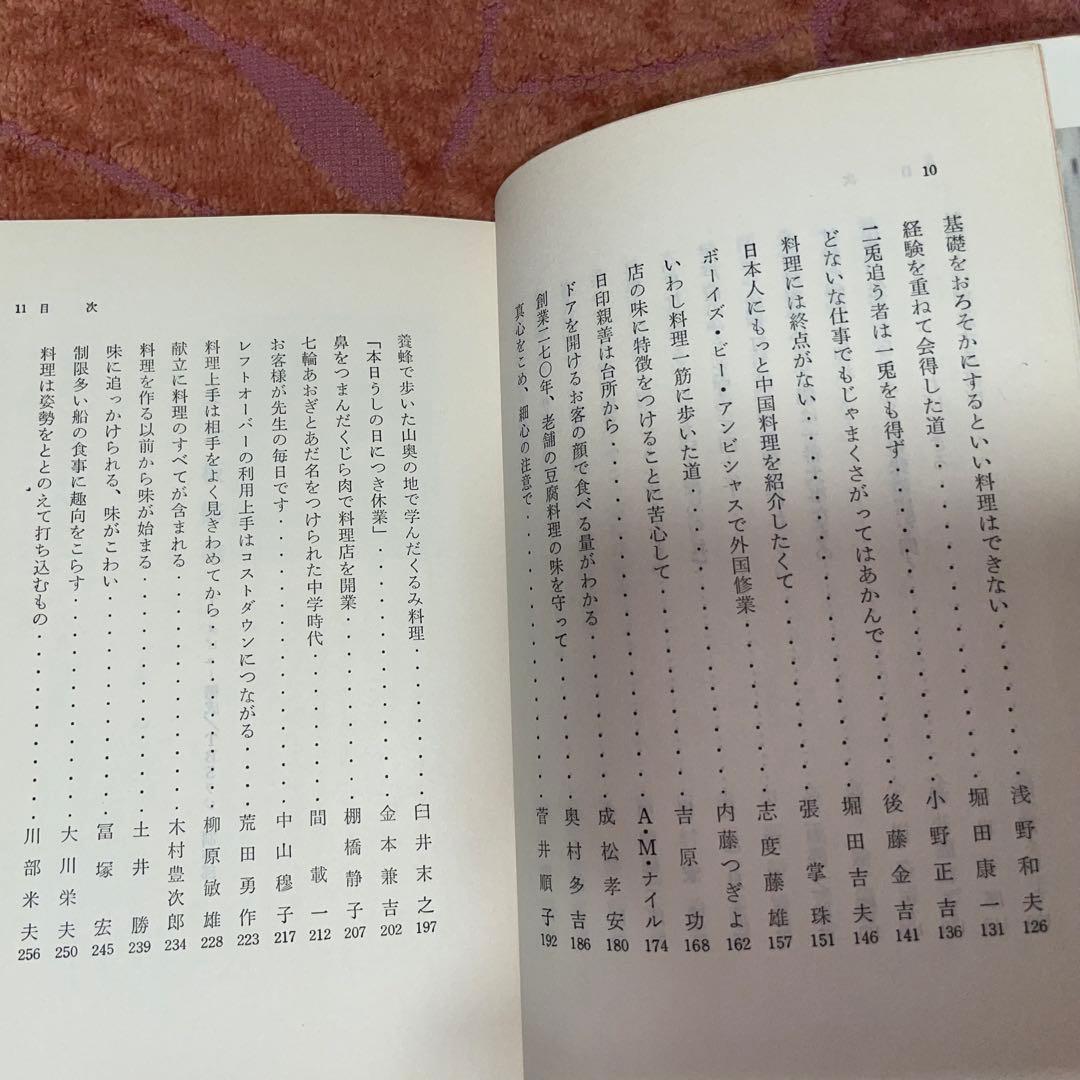 10
基礎をおろそかにするといい料理はできない・・・・・浅野和夫 126
経験を重ねて会得した道・・・・・堀田康一 131
二兎追う者は一兎をも得ず・・・・・小野正吉 136
どないな仕事でもじゃまくさがってはあかんで・・・・・後藤金吉 141
料理には終点がない・・・・・堀田吉夫 146
日本人にもっと中国料理を紹介したくて・・・・・張掌珠 151
ボーイズ・ビー・アンビシャスで外国修業・・・・・志度藤雄 157
いわし料理一筋に歩いた道・・・・・内藤つぎよ 162
店の味に特徴をつけることに苦心して・・・・・吉原功 168
日印親善は台所から・・・・・A・M・ナイル 174
ドアを開けるお客の顔で食べる量がわかる・・・・・成松孝安 180
創業二七〇年、老舗の豆腐料理の味を守って・・・・・奥村多吉 186
真心をこめ、細心の注意で・・・・・菅井順子 192
11 目 次
養蜂で歩いた山奥の地で学んだくるみ料理・・・・・臼井末之 197
「本日うしの日につき休業」・・・・・金本兼吉 202
鼻をつまんだくじら肉で料理店を開業・・・・・棚橋静子 207
七輪あおぎとあだ名をつけられた中学時代・・・・・間載一 212
お客様が先生の毎日です・・・・・中山穆子 217
レフトオーバーの利用上手はコストダウンにつながる・・・・・荒田勇作 223
料理上手は相手をよく見きわめてから・・・・・柳原敏雄 228
献立に料理のすべてが含まれる・・・・・木村豊次郎 234
料理を作る以前から味が始まる・・・・・土井勝 239
味に追っかけられる、味がこわい・・・・・冨塚宏 245
制限多い船の食事に趣向をこらす・・・・・大川栄夫 250
料理は姿勢をととのえて打ち込むもの・・・・・川部米夫 256